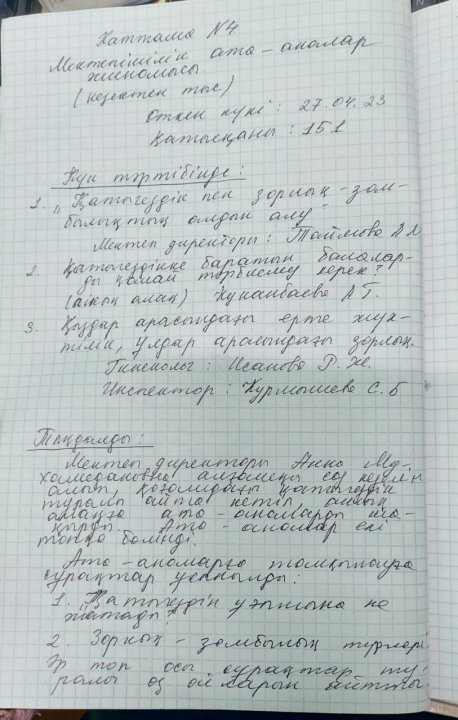 Хаттама №4
Мектепішілік ата-аналар
жиналысы
(кезектен тыс)
Өткен күні: 27.04.23
Қатысқаны: 151
Күн тәртібінде:
1. "Қатыгездік пен зорлық-зом-
былықтың алдын алу"
Мектеп директоры: Тоймова А.М
2. Қатыгездікке баратын балалар-
ды қалай тәрбиелеу керек?
(ашық алаң) Кунанбаева А.Г.
3. Қыздар арасындағы ерте жүк-
тілік, ұлдар арасындағы зорлық.
Гинеколог: Исанова Р. Ж.
Инспектор: Курмышева С. Б
Тыңдалды:
Мектеп директоры Анна Му-
хамедановна алғашқы сөз кезегін
алып, қоғамдағы қатыгездік
туралы айтып кетіп, ашық
алаңға ата-аналарды ша-
қырды. Ата-аналар екі
топқа бөлінді.
Ата-аналарға талқылауға
сұрақтар ұсынылды:
1. "Қатыгездік ұғымына не
жатады?
2. Зорлық-зомбылық түрлері
Әр топ осы сұрақтар ту-
ралы өз ойларын айтты